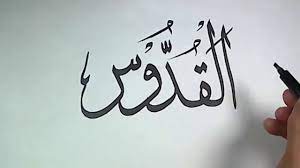 القُدُّوس